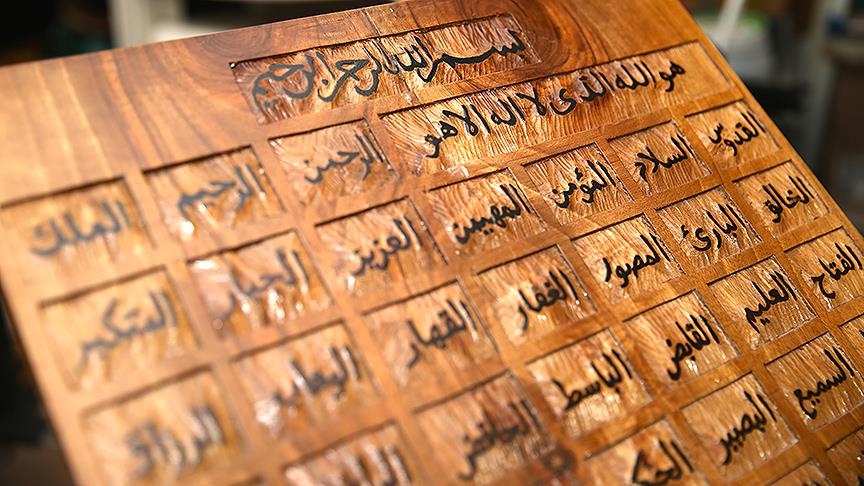 بسم الله الرحمن الرحيم
هو الله الذى لا اله الا هو الرحمن الرحيم الملك
القدوس السلام المؤمن المهيمن العزيز الجبار المتكبر
الخالق البارئ المصور الغفار القهار الوهاب الرزاق
الفتاح العليم القابض الباسط الخافض
السميع البصير الحكم